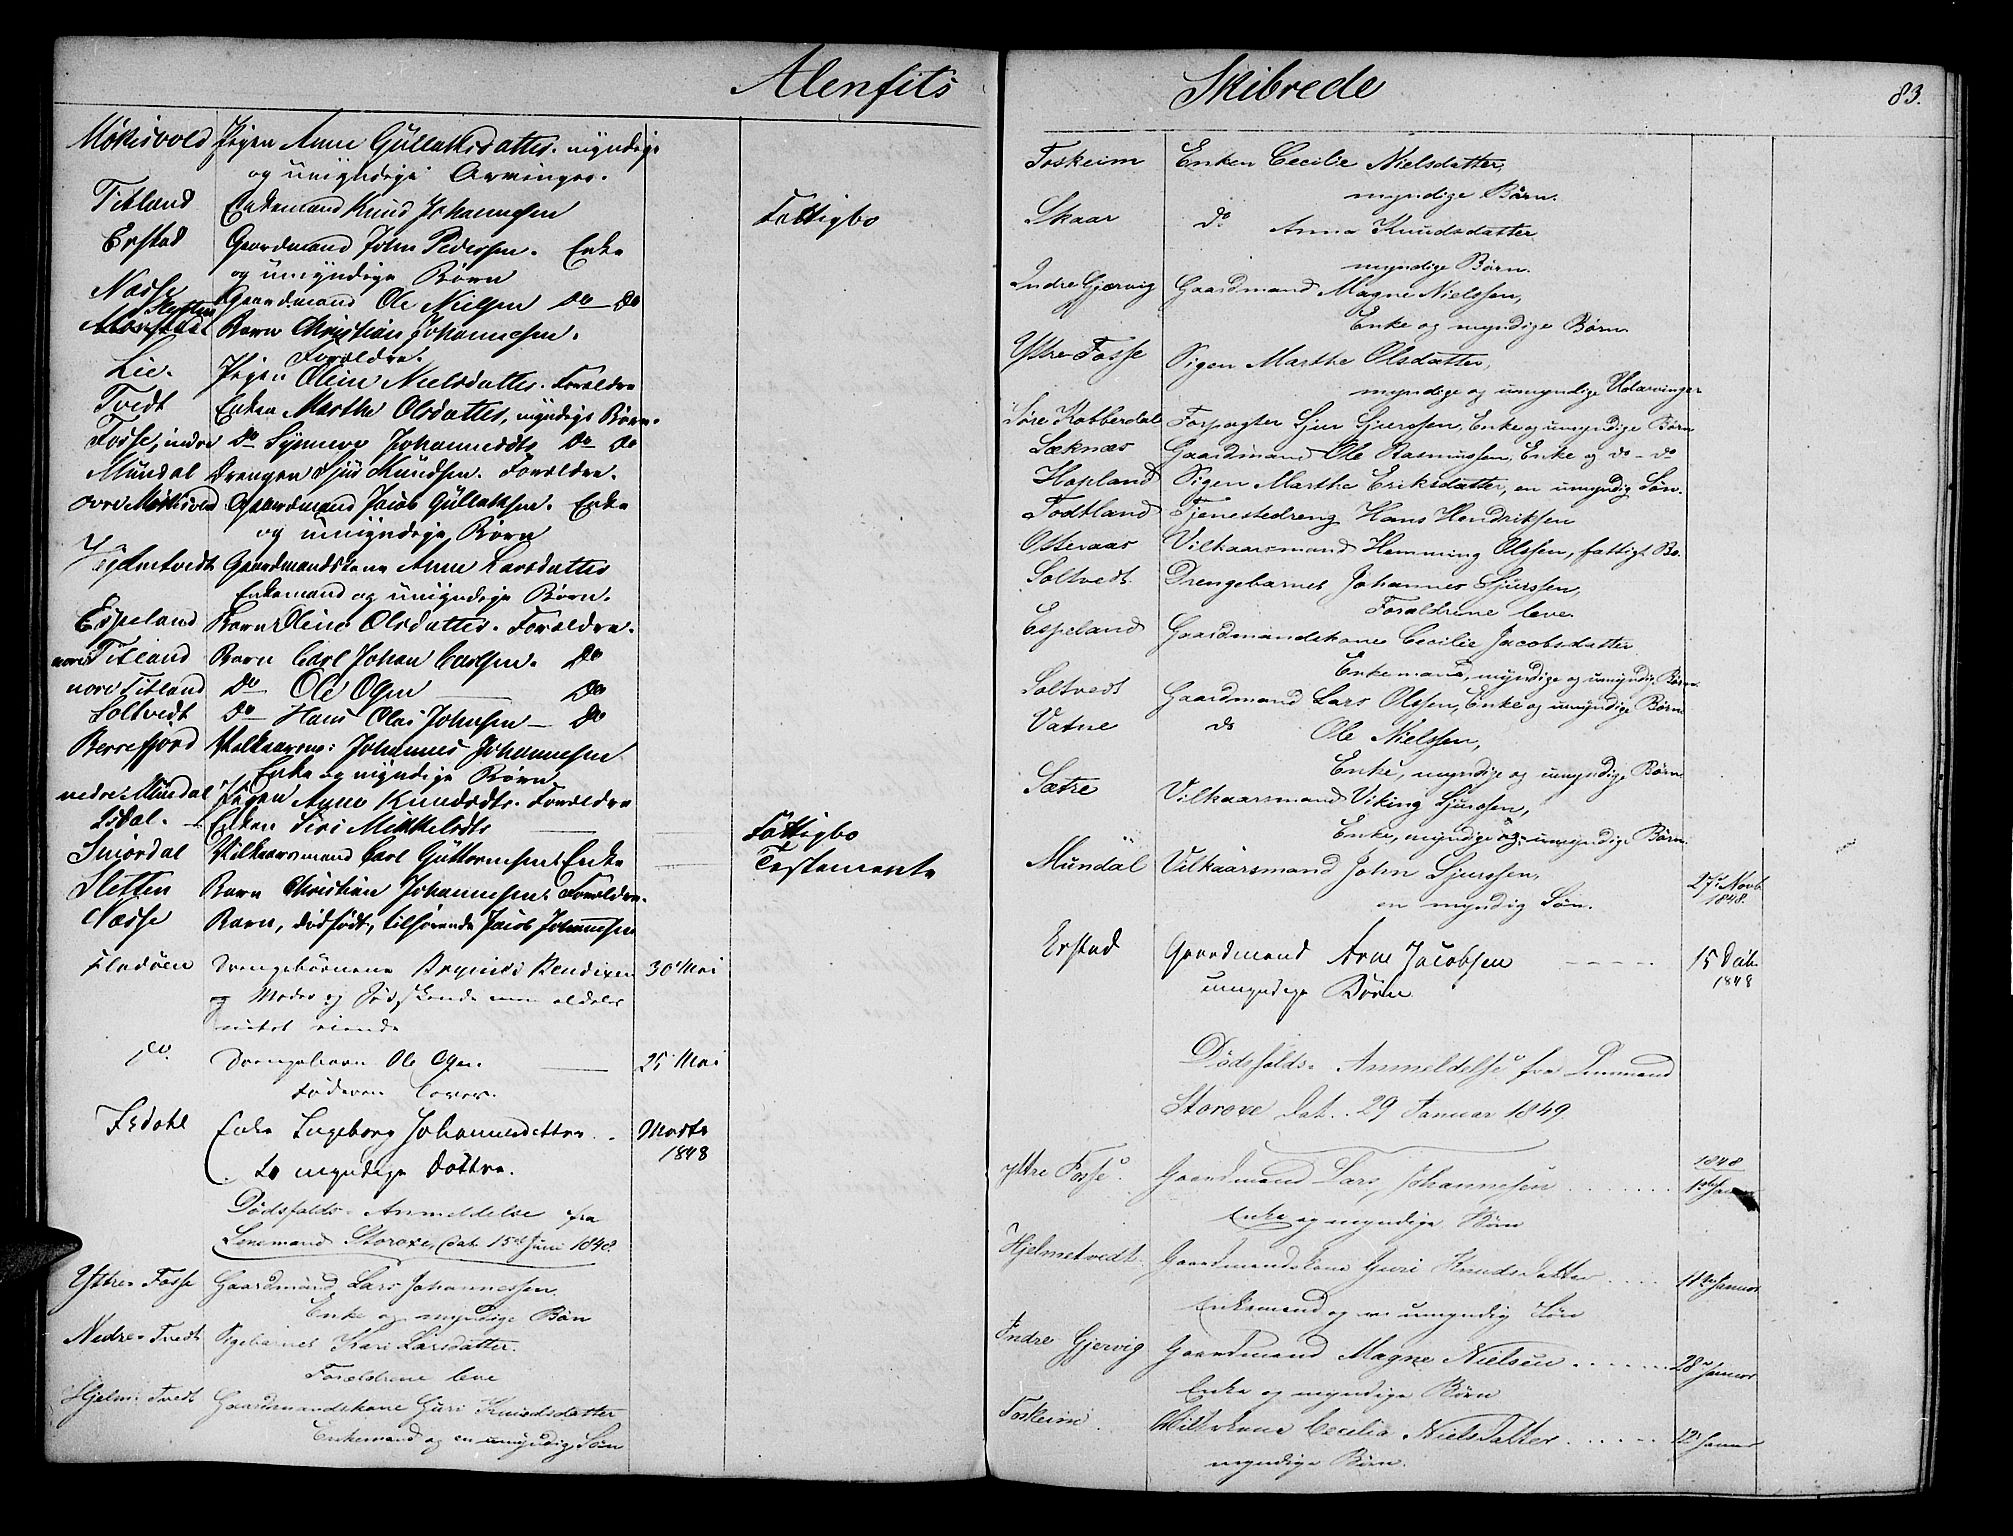 Alenfits Skibrede
83.
Møkisvold Pigen Anne Gullaksdatter. myndige
og umyndige Arvinger.
Titland Enkemand Knud Johannesen Fattigbo
Erstad Gaardmand John Pedersen. Enke
og umyndige Børn
Nædse Gaardmand Ole Nielsen Do — Do
Sletten Barn Christian Johannesen.
Forældre.
Lie. Pigen Oline Nielsdatter. Forældre
Tvedt Enken Marthe Olsdatter, myndige Børn.
Fosse, indre Do Synneve Johannesdtr Do Do
Mundal Drengen Sjur Knudsen. Forældre.
Gaardmand Jacob Gullaksen. Enke
og umyndige Børn
Hjelmtvedt Gaardmandskone Anne Larsdatter
Enkemand og umyndige Børn.
Espeland Barn Oline Olsdatter. Forældre.
nore Titland Barn Carl Johan Carlsen. Do
nore Titland Do Ole Olsen — Do
Soltvedt Do Hans Olai Johnsen — Do
Berrefjord Vilkaarsm: Johannes Johannesen
Enke og myndige Børn.
nedre Mundal Pigen Anne Knudsdtr. Forældre
Isdal. Enken Siri Mikkelsdtr Fattigbo
Smørdal Vilkaarsmand Carl Guttormsen Enke Testamente
Sletten Barn Christian Johannesen. Forældre.
Nædse Barn, dødfødt, tilhørende Jacob Johannesen
Fladøen Drengebørnene Bendixen 30 Mai
og Moder og Sødskende
Do. Drengebarn Ole Olsen. 25 Mai
Faderen lever.
Isdahl Enke Ingeborg Johannesdatter. Marts
1848
to myndige Døttre.
Dødsfalds-Anmeldelse fra
Lensmand Storoxe, dat. 15de Juni 1848.
Yttre Fosse Gaardmand Lars Johannessen
Enke og myndige Børn
Nedre Tvedt Pigebarnet Kari Larsdatter.
Forældrene leve
Hjelm: Tvedt Gaardmandskone Guri Knudsdatter
Enkemand og en umyndig Søn
Foskeim Enken Cecilie Nielsdatter,
myndige Børn.
Skaar do Anna Knudsdatter
myndige Børn.
Indre Gjervig Gaardmand Magne Nielssen,
Enke og myndige Børn
Yttre Fosse Pigen Marthe Olsdatter,
myndige og umyndige Udarvinger
Søre Kobberdal Forpagter Sjur Sjurssen, Enke og umyndige Børn
Sæknæs Gaardmand Ole Rasmussen, Enke og do - do
Hopland Pigen Marthe Eriksdatter, en umyndig Søn.
Todtland Tjenestedreng Hans Hendriksen
Otteraas Vilkaarsmand Hemming Olssen, fattigt Bo.
Soltvedt Drengebarnet Johannes Sjurssen,
Forældrene leve.
Espeland Gaardmandskone Cecilie Jacobsdatter
Enkemand, myndige og umyndige Børn.
Soltvedt Gaardmand Lars Olssen, Enke og umyndige Børn
Vatne do Ole Nielssen,
Enke, myndige og umyndige Børn
Sætre Vilkaarsmand Viking Sjurssen,
Enke, myndige og umyndige Børn.
Mundal Vilkaarsmand John Sjurssen, 27 Novb
1848.
en myndig Søn.
Erstad Gaardmand Arne Jacobsen 15 Debr
1848
umyndige Børn
Dødsfalds-Anmeldelse fra Lensmand
Storoxe dat. 29 Januar 1849.
1848
Yttre Fosse. Gaardmand Lars Johannesen
Enke og myndige Børn
Hjelmetvedt. Gaardmandskone Guri Knudsdatter Januar
Enkemand og en umyndig Søn
Indre Gjervig Gaardmand Magne Nielsen 28 Januar
Enke og myndige Børn
Foskeim Cecilia Nielsdatter 12 Januar
myndige Børn.